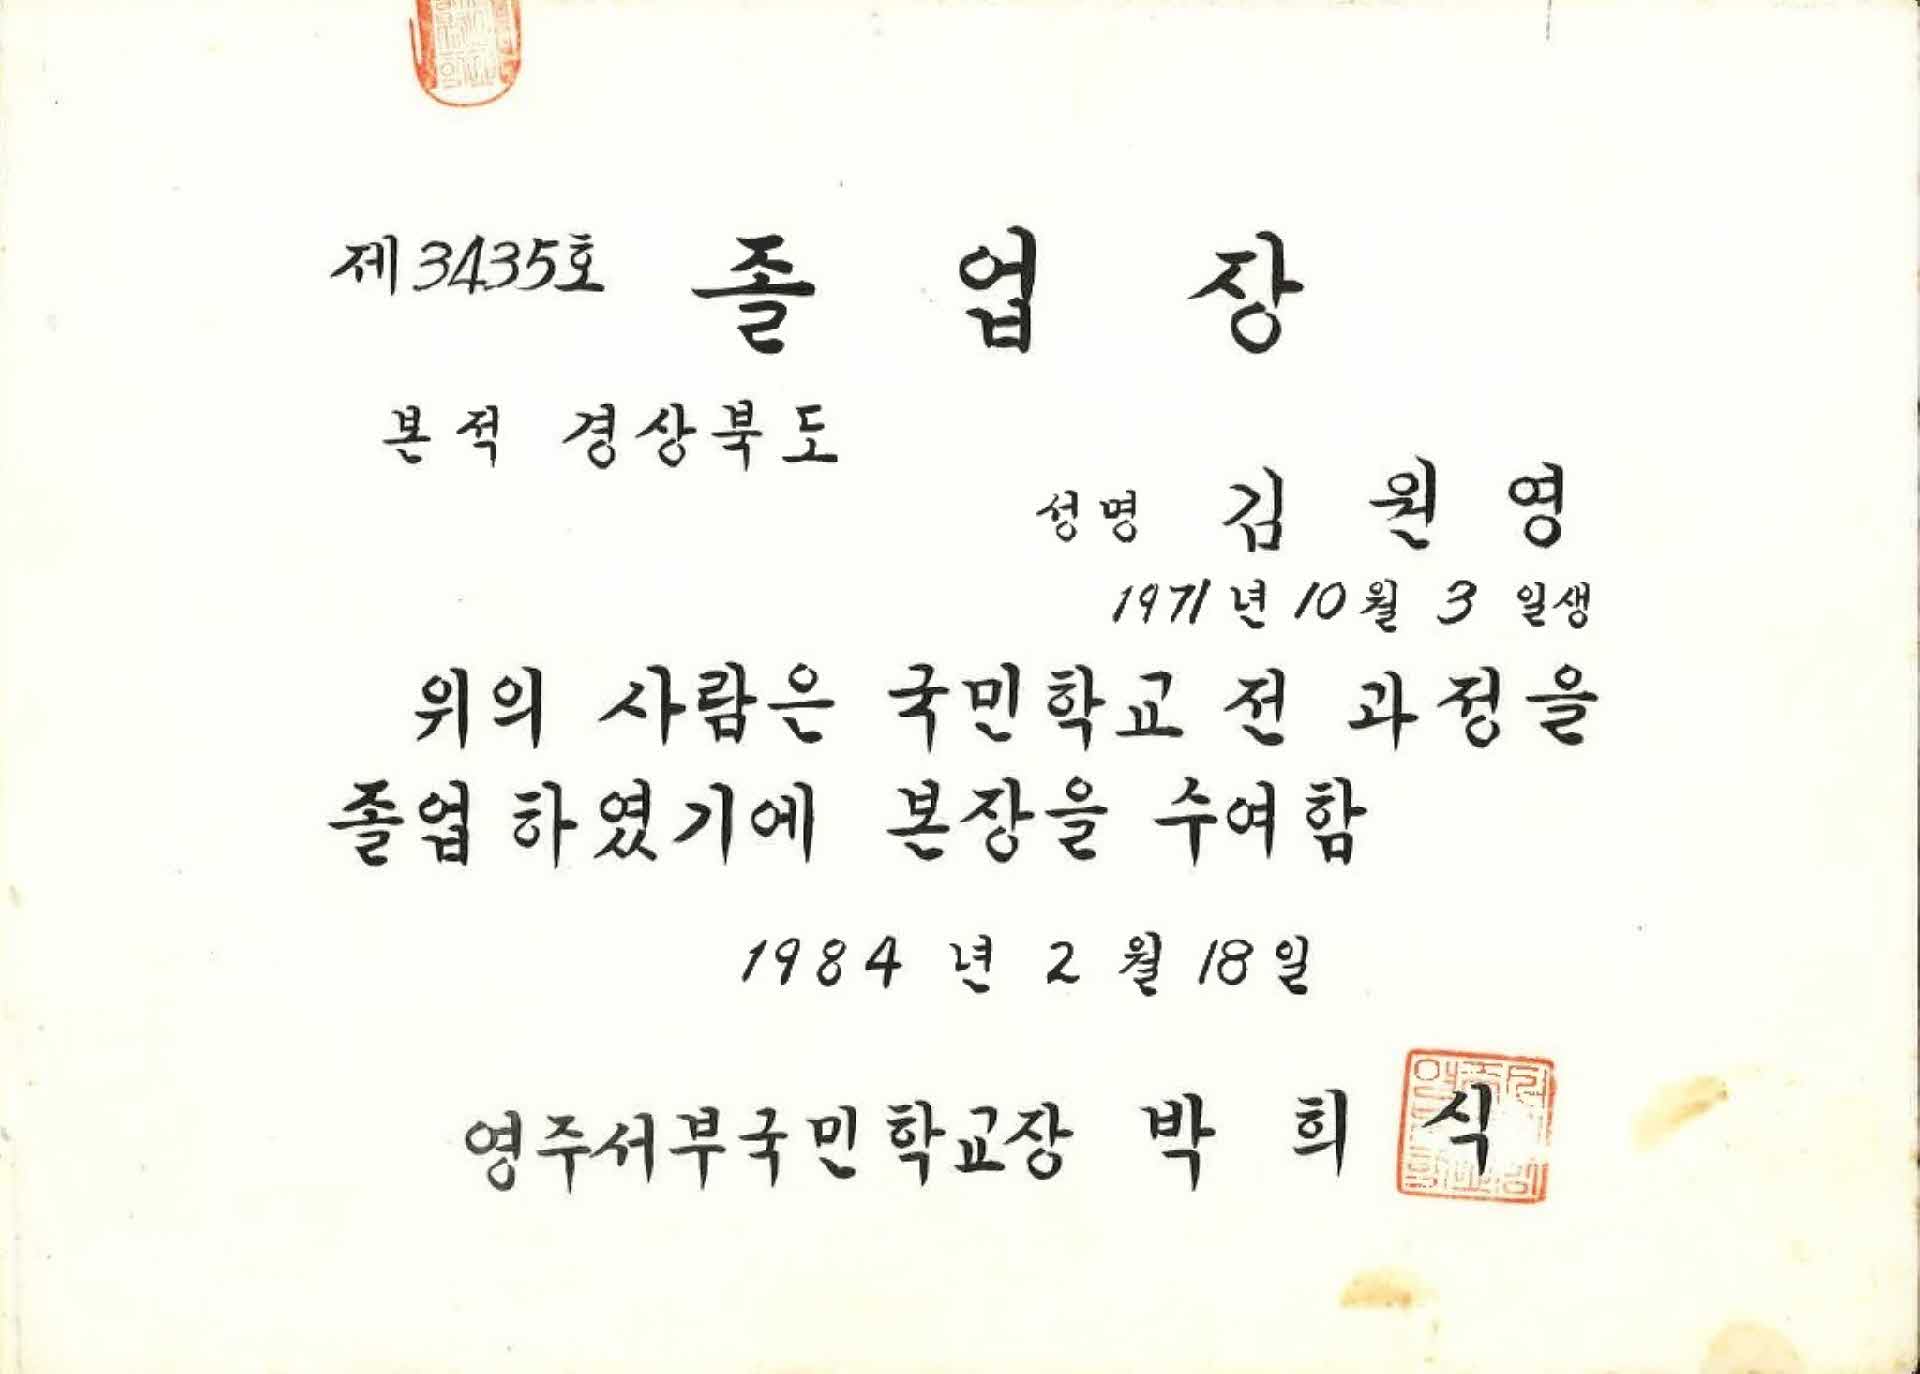 제3435호 졸업장
본적 경상북도
성명 김원영
1971년 10월 3일생
위의 사람은 국민학교 전 과정을
졸업 하였기에 본장을 수여함
1984년 2월 18일
영주서부국민학교장 박희식